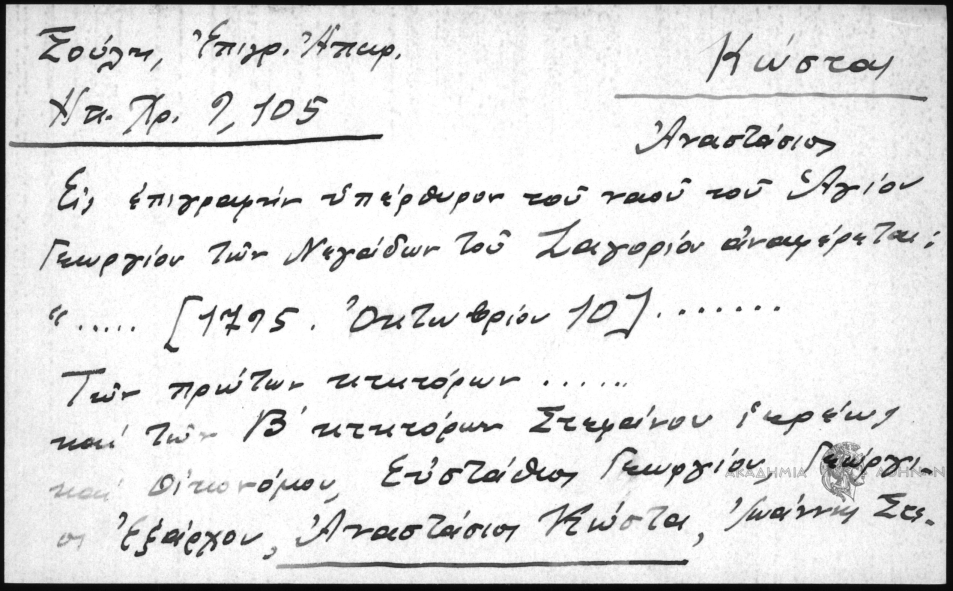 Σούλη, Ἐπιγρ. Ἠπειρ.
Κώστας
Ἠπ. Χρ. 9, 105
Ἀναστάσιος
Εἰς ἐπιγραφὴν ὑπέρθυρον τοῦ ναοῦ τοῦ Ἁγίου
Γεωργίου τῶν Νεγάδων τοῦ Ζαγορίου ἀναφέρεται:
“..... [1795. Ὀκτωβρίου 10] .......
Τῶν πρώτων κτητόρων ......
καὶ τῶν Β΄ κτητόρων Στεφάνου ἱερέως
καὶ Οἰκονόμου, Εὐστάθιος Γεωργίου Γεώργι-
ος Ἐξάρχου, Ἀναστάσιος Κώστα, Ἰωάννης Στε-
ΑΚΑΔΗΜΙΑ ΑΘΗΝΩΝ